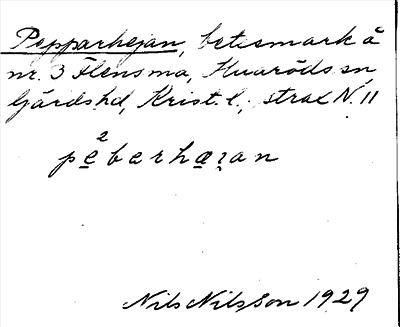 Pepparhejan, betesmark å
nr. 3 Flensma, Huaröds sn,
Gärds hd, Krist. l., strax N. 11
2
pebarhæʒan
Nils Nilsson 1929